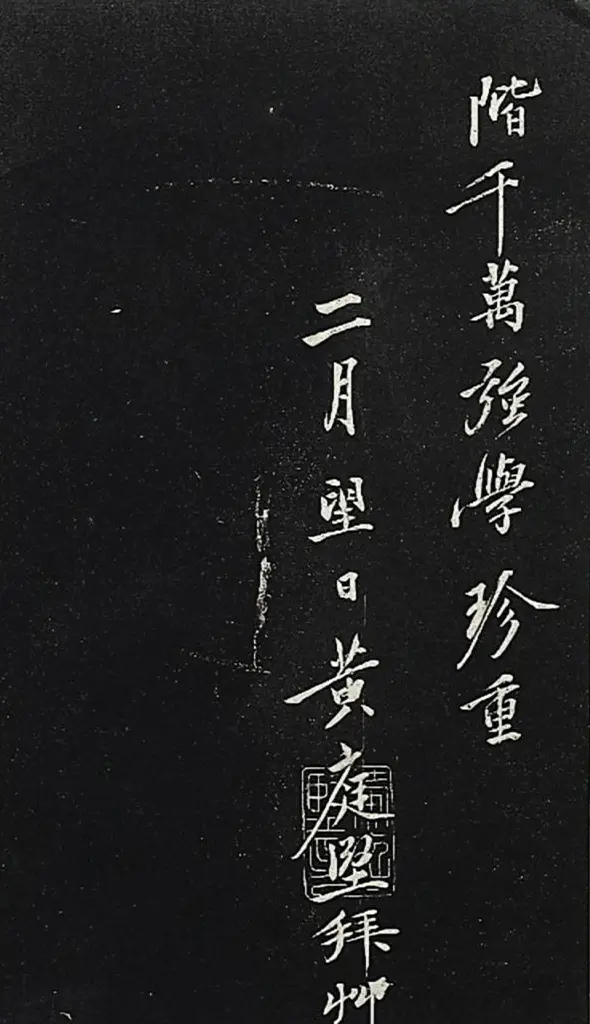 階千萬强學珍重
二月望日黃庭堅拜艸